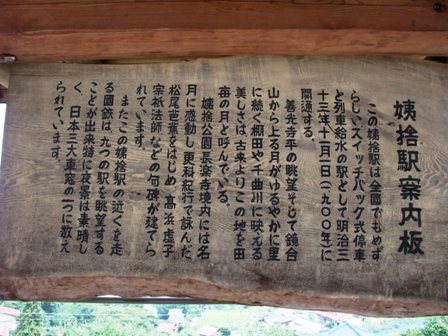 姨捨駅案内板
この姨捨駅は全国でもめず
らしいスイッチバック式停車
と列車給水の駅として明治三
十三年十一月一日(一九〇〇年)に
開通する。
善光寺平の眺望そして鏡台
山から上る月がゆるやかに里
に続く棚田や千曲川に映える
美しさは古来よりこの地を田
毎の月と呼んでいる。
姨捨公園長楽寺境内には名
月に感動し更科紀行で詠んだ
松尾芭蕉をはじめ高浜虚子
宗祇法師などの句碑が建てら
れています。
またこの姨捨駅の近くを走
る國鉄は、九つの駅を眺望する
ことが出来特に夜景は素晴し
く、日本三大車窓の一つに数え
られています。